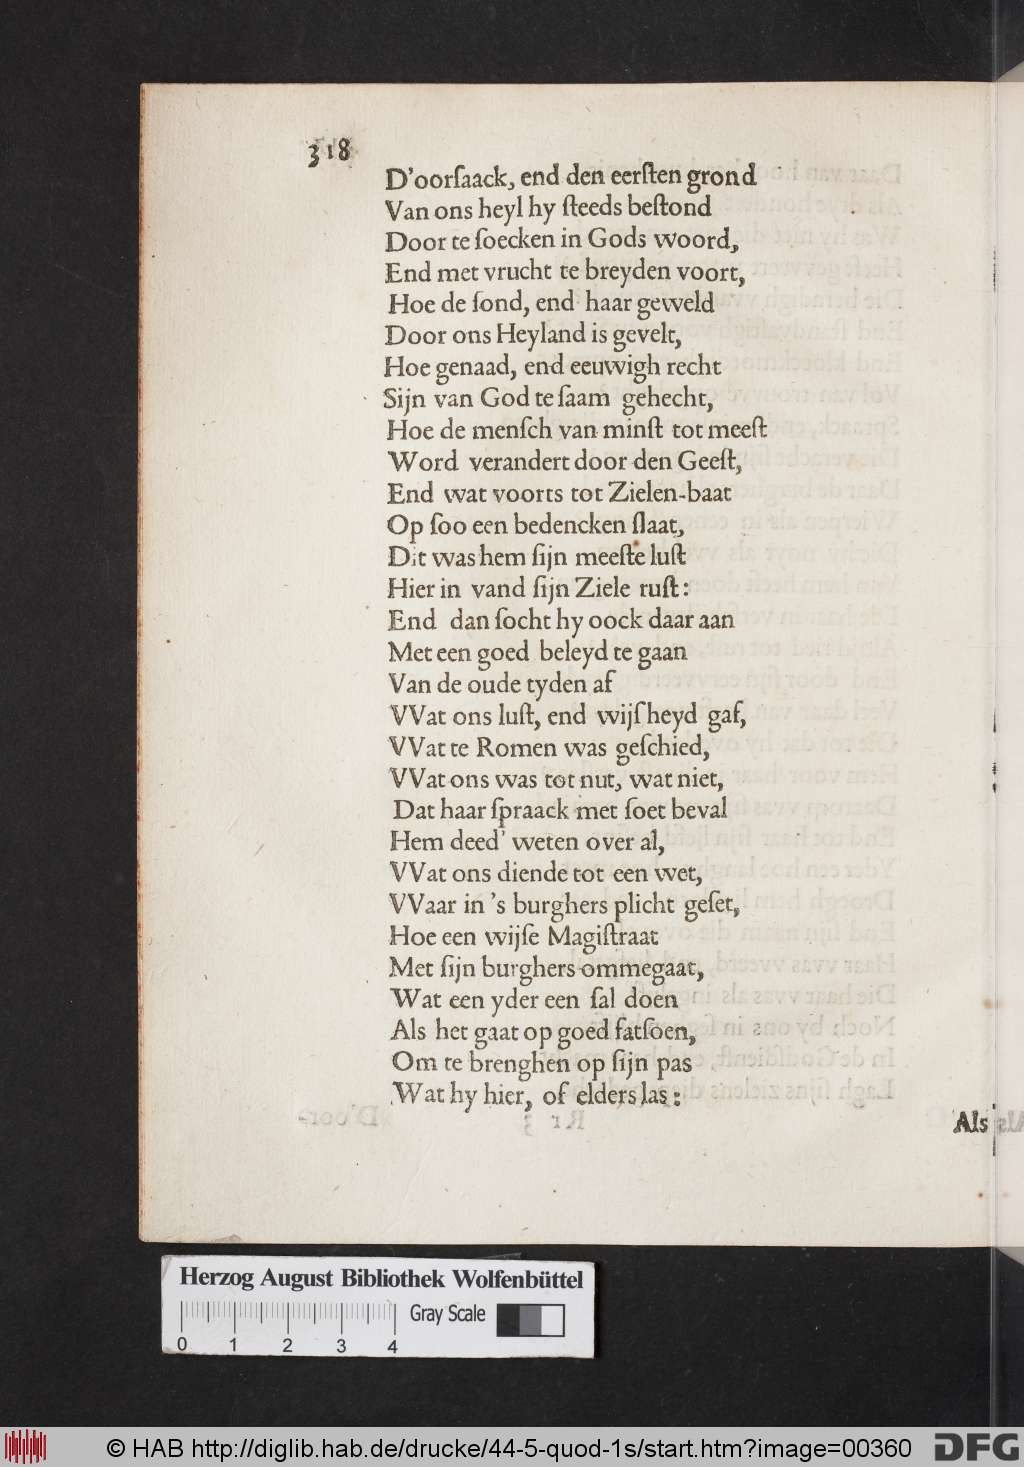 318
D'oorſaack, end den eerſten grond
Van ons heyl hy ſteeds beſtond
Door te ſoecken in Gods woord,
End met vrucht te breyden voort,
Hoe de ſond, end haar geweld
Door ons Heyland is gevelt,
Hoe genaad, end eeuwigh recht
Sijn van God te ſaam gehecht,
Hoe de menſch van minſt tot meeſt
Word verandert door den Geeſt,
End wat voorts tot Zielen-baat
Op ſoo een bedencken ſlaat,
Dit was hem ſijn meeſte luſt
Hier in vand ſijn Ziele ruſt:
End dan ſocht hy oock daar aan
Met een goed beleyd te gaan
Van de oude tyden af
VVat ons luſt, end wijſheyd gaf,
VVat te Romen was geſchied,
VVat ons was tot nut, wat niet,
Dat haar ſpraack met ſoet beval
Hem deed' weten over al,
VVat ons diende tot een wet,
VVaar in 's burghers plicht geſet,
Hoe een wijſe Magiſtraat
Met ſijn burghers ommegaat,
Wat een yder een ſal doen
Als het gaat op goed fatſoen,
Om te brenghen op ſijn pas
Wat hy hier, of elders las:
Als
Herzog August Bibliothek Wolfenbüttel
Gray Scale
0 1 2 3 4
© HAB http://diglib.hab.de/drucke/44-5-quod-1s/start.htm?image=00360
DFG